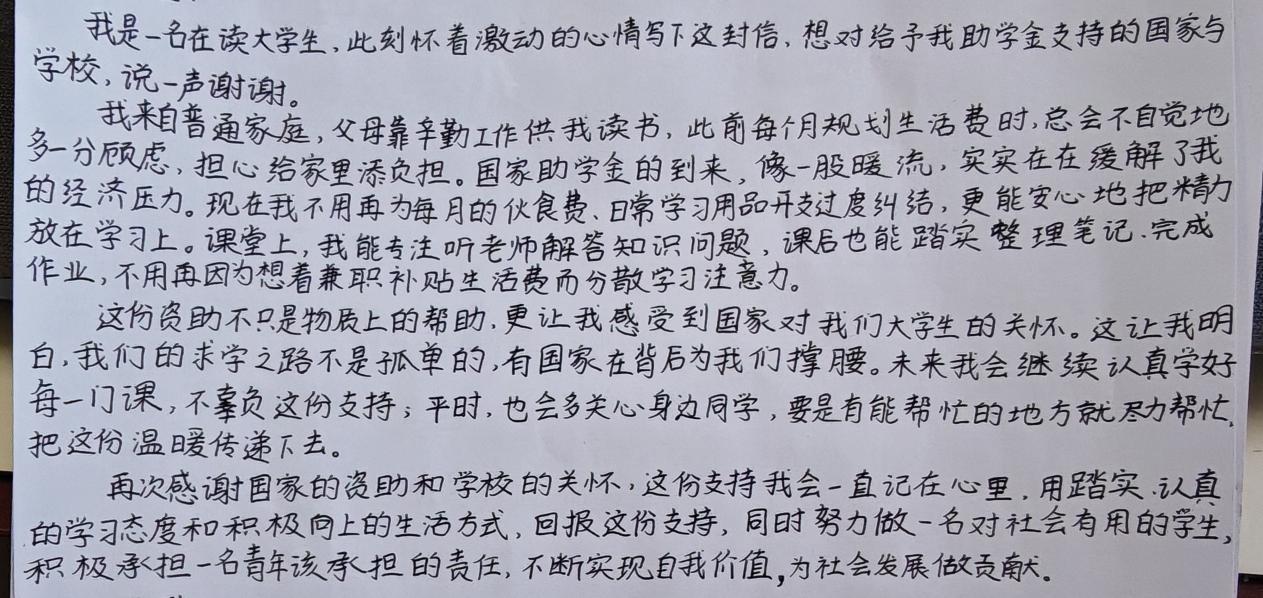 我是一名在读大学生，此刻怀着激动的心情写下这封信，想对给予我助学金支持的国家与
学校，说一声谢谢。
我来自普通家庭，父母靠辛勤工作供我读书，此前每个月规划生活费时，总会不自觉地
多一分顾虑，担心给家里添负担。国家助学金的到来，像一股暖流，实实在在缓解了我
的经济压力。现在我不用再为每月的伙食费、日常学习用品开支过度纠结，更能安心地把精力
放在学习上。课堂上，我能专注听老师解答知识问题，课后也能踏实整理笔记、完成
作业，不用再因为想着兼职补贴生活费而分散学习注意力。
这份资助不只是物质上的帮助，更让我感受到国家对我们大学生的关怀。这让我明
白，我们的求学之路不是孤单的，有国家在背后为我们撑腰。未来我会继续认真学好
每一门课，不辜负这份支持；平时，也会多关心身边同学，要是有能帮忙的地方就尽力帮忙，
把这份温暖传递下去。
再次感谢国家的资助和学校的关怀，这份支持我会一直记在心里，用踏实、认真
的学习态度和积极向上的生活方式，回报这份支持，同时努力做一名对社会有用的学生，
积极承担一名青年该承担的责任，不断实现自我价值，为社会发展做贡献。